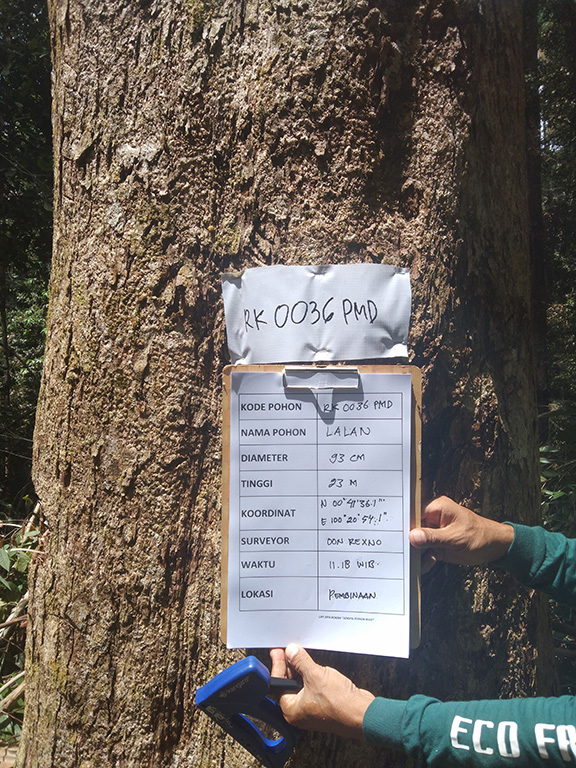 RK 0036 PMD
KODE POHON RK 0036 PMD
NAMA POHON LALAN
DIAMETER 93 CM
TINGGI 23 M
KOORDINAT N 00°41'36.1"
E 100°20'54.1"
SURVEYOR DON REXNO
WAKTU 11.18 WIB.
LOKASI PEMBINAAN
ECO FA